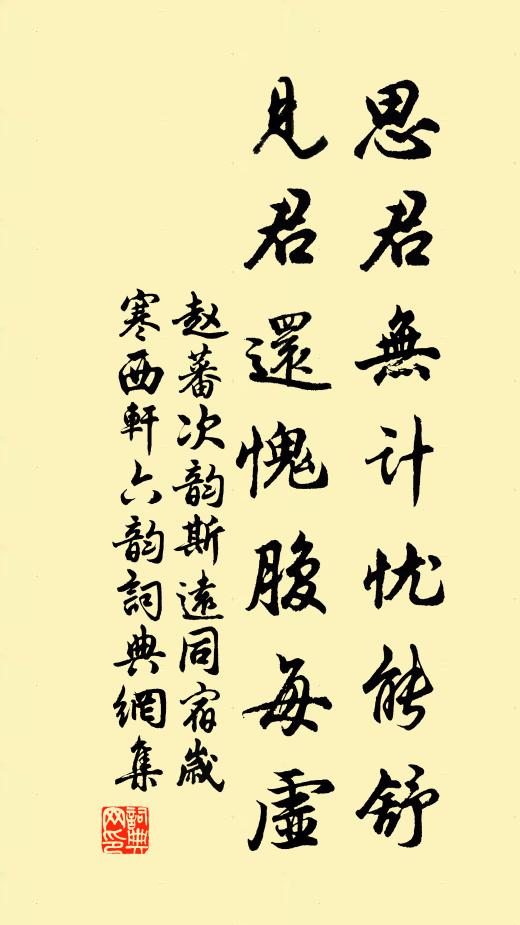 思君無计忧能舒
见君還愧腹每虛
赵蕃次韵斯遠同宿歲
寒西軒六韵詞典網集
詞典網印